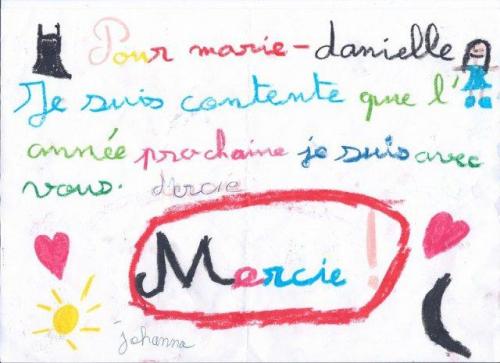 Pour marie-danielle
Je suis contente que l'
année prochaine je suis avec
vous.
Mercie !
johanna